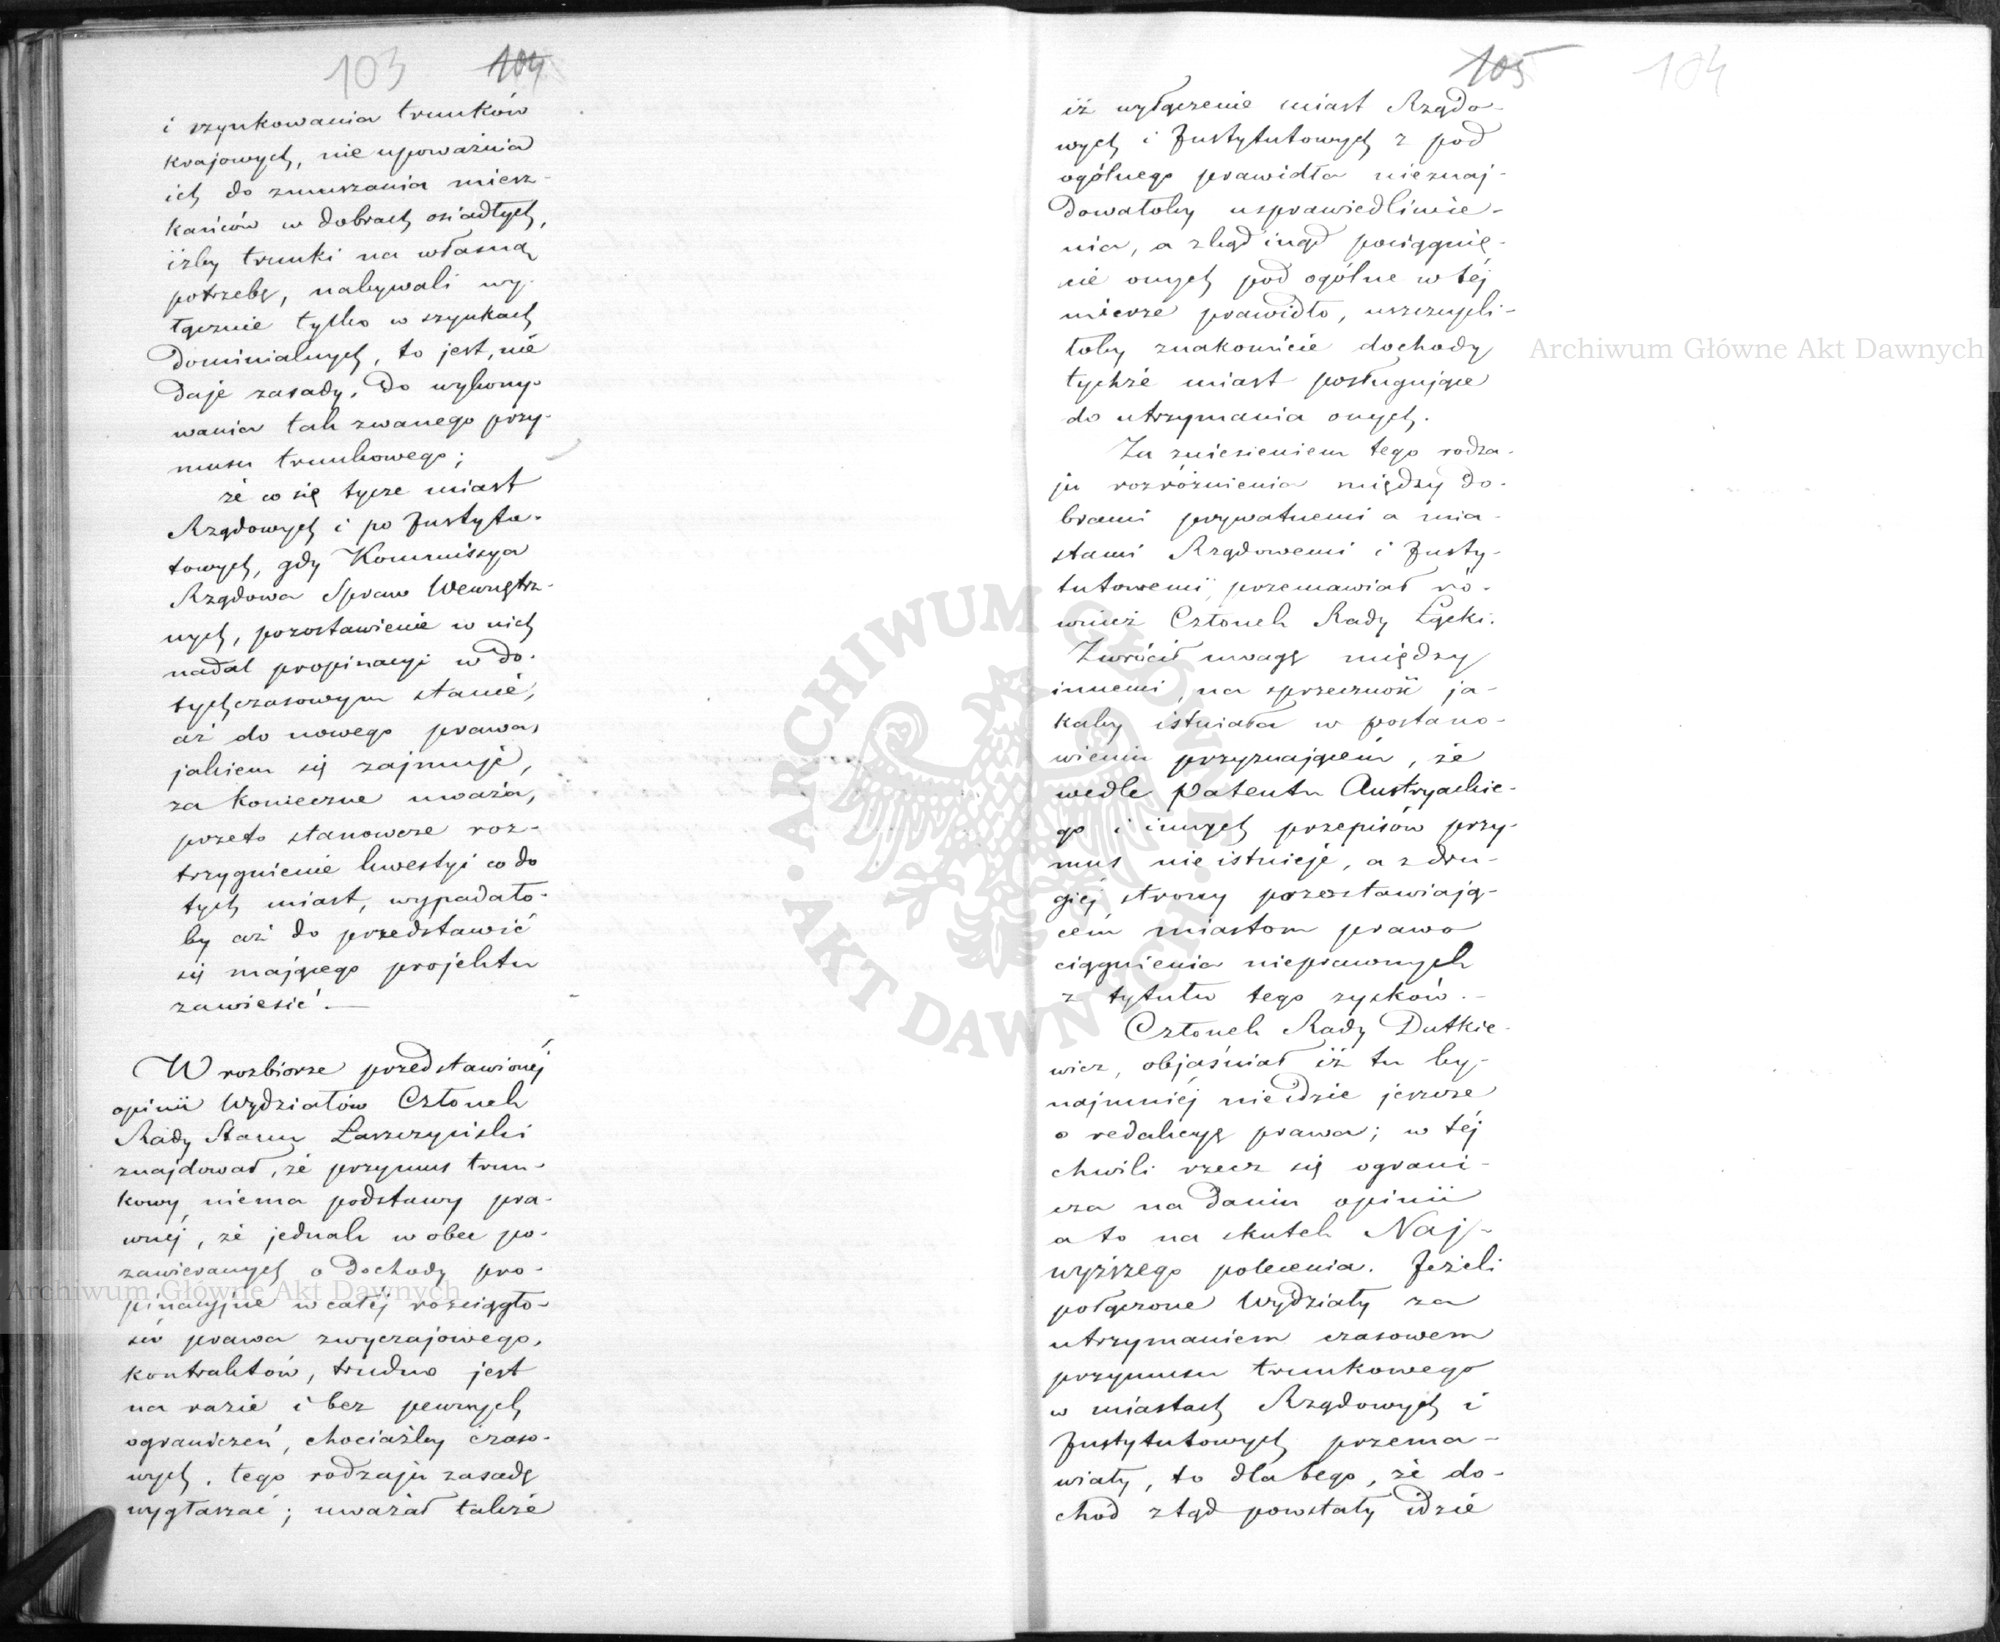 103 104
i szynkowania trunków
krajowych, nie upoważnia
ich do zmuszania miesz-
kańców w dobrach osiadłych,
iżby trunki na własną
potrzebę, nabywali wy-
łącznie tylko w szynkach
Dominialnych, to jest, nie
daje zasady, do wykony-
wania tak zwanego przy-
musu trunkowego;
że co się tycze miast
Rządowych i po Justytu-
towych, gdy Kommissya
Rządowa Spraw Wewnętrz-
nych, pozostawienie w nich
nadal propinacyi w do-
tychczasowym stanie,
aż do nowego prawa,
jakiem się zajmuje,
za konieczne uważa,
przeto stanowcze roz-
trzygnienie kwestyi co do
tych miast, wypadało-
by aż do przedstawić
się mającego projektu
zawiesić.—
W rozbiorze przedstawionéj
opinii Wydziałów Członek
Rady Stanu Łaszczyński
znajdował, że przymus trun-
kowy niema podstawy pra-
wnéj, że jednak w obec po-
zawieranych o dochody pro-
pinacyjne w całéj rozciągło-
ści prawa zwyczajowego,
kontraktów, trudno jest
na razie i bez pewnych
ograniczeń, chociażby czaso-
wych, tego rodzaju zasadę
wygłaszać; uważał także
105 104
iż wyłączenie miast Rządo-
wych i Justytutowych z pod
ogólnego prawidła nieznaj-
dowałoby usprawiedliwie-
nia, a zkąd inąd pociągnię-
nie onych pod ogólne w téj
mierze prawidło, uszczupli-
łoby znakomicie dochody
tychże miast posługujące
do utrzymania onych.
Za zniesieniem tego rodza-
ju rozróżnienia między do-
brami prywatnemi a mia-
stami Rządowemi i Justy-
tutowemi, przemawiał ró-
wnież Członek Rady Łącki.
Zwrócił uwagę między
innemi, na sprzeczność ja-
kaby istniała w postano-
wieniu przyznającém, że
wedle Patentu Austryackie-
go i innych przepisów przy-
mus nie istnieje, a z dru-
giéj strony pozostawiają-
cém miastom prawo
ciągnienia nieprawnych
z tytułu tego zysków.—
Członek Rady Dutkie-
wicz, objaśniał iż tu by-
najmniéj nie idzie jeszcze
o redakcyę prawa; w téj
chwili rzecz się ograni-
cza na daniu opinii
a to na skutek Naj-
wyższego polecenia. Jeżeli
połączone Wydziały za
utrzymaniem czasowem
przymusu trunkowego
w miastach Rządowych i
Justytutowych przema-
wiały, to dla tego, że do-
chód ztąd powstały idzie
Archiwum Główne Akt Dawnych
Archiwum Główne Akt Dawnych
ARCHIWUM GŁÓWNE AKT DAWNYCH